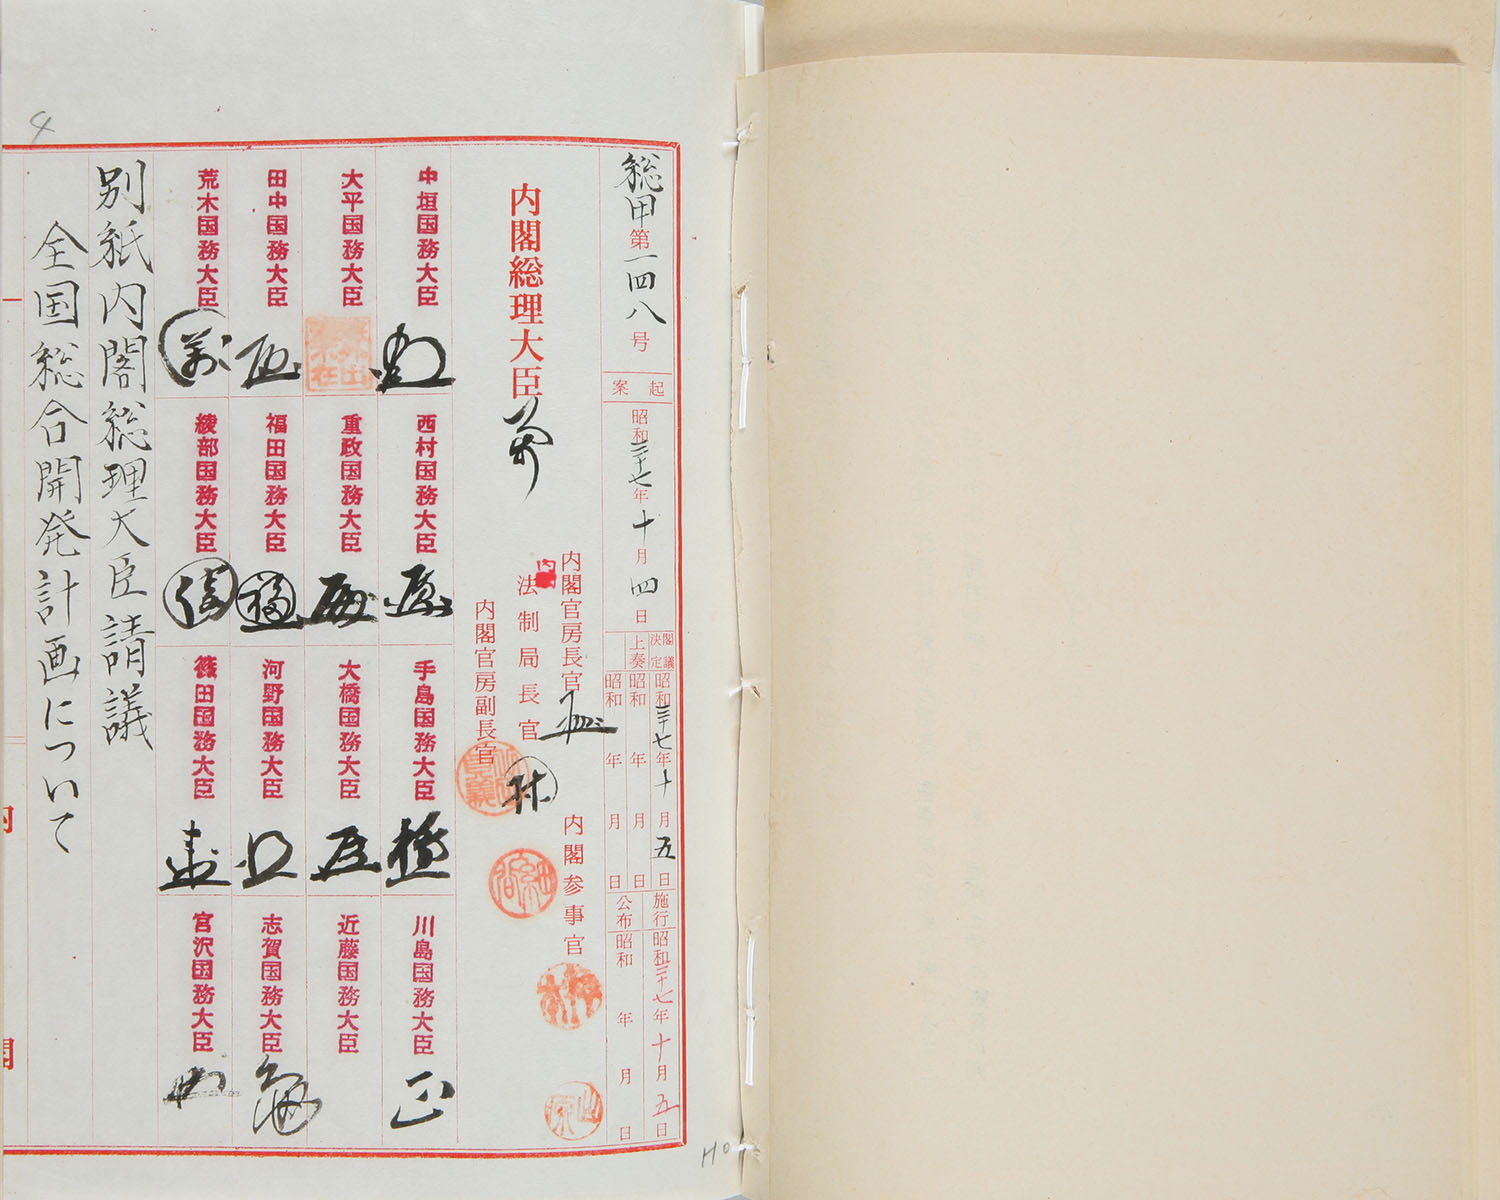 総甲第一四八号
起案
昭和三十七年十月四日
閣議決定
昭和三十七年十月五日
上奏
昭和 年 月 日
昭和 年 月 日
施行
昭和三十七年十月五日
公布
昭和 年 月 日
内閣総理大臣
内閣官房長官
法制局長官
内閣官房副長官
内閣参事官
中垣国務大臣
西村国務大臣
手島国務大臣
川島国務大臣
大平国務大臣
重政国務大臣
大橋国務大臣
近藤国務大臣
田中国務大臣
福田国務大臣
河野国務大臣
志賀国務大臣
荒木国務大臣
綾部国務大臣
篠田国務大臣
宮沢国務大臣
別紙内閣総理大臣請議
全国総合開発計画について
内閣
4